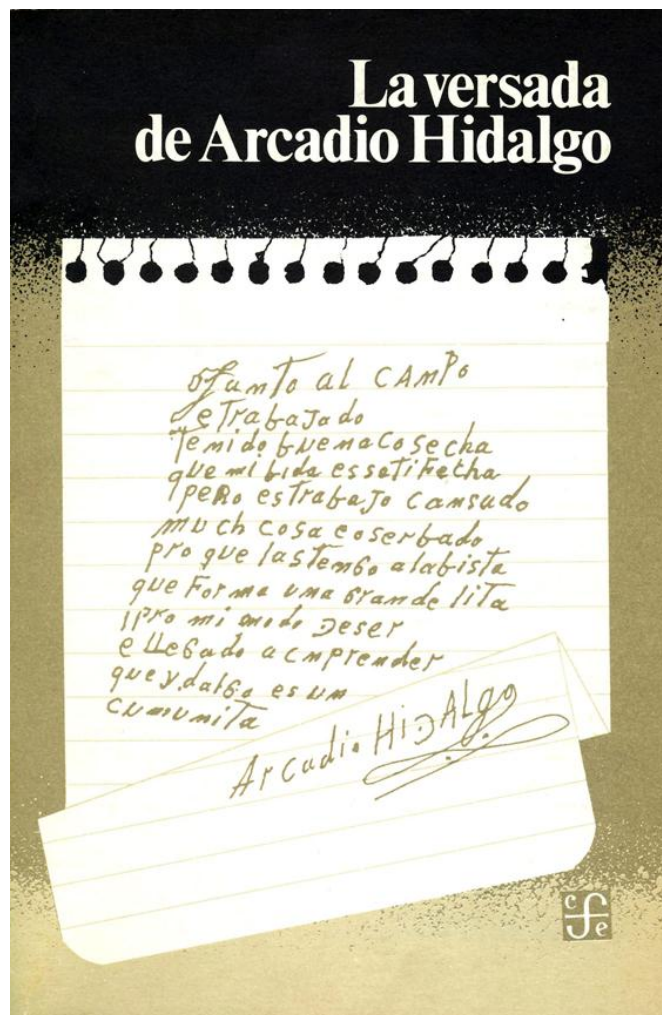 La versada
de Arcadio Hidalgo
Junto al CAMPO
e TrabaJado
Tenido buenacosecha
que mi bida essatifecha
pero esTrabaJo cansado
much cosa coserbado
pro que lastengo alabista
que Forma una grande lita
pro mi modo Deser
e llegado a cmprender
que y,dalgo es un
cumunita
Arcadio HiDAlgo
cfe